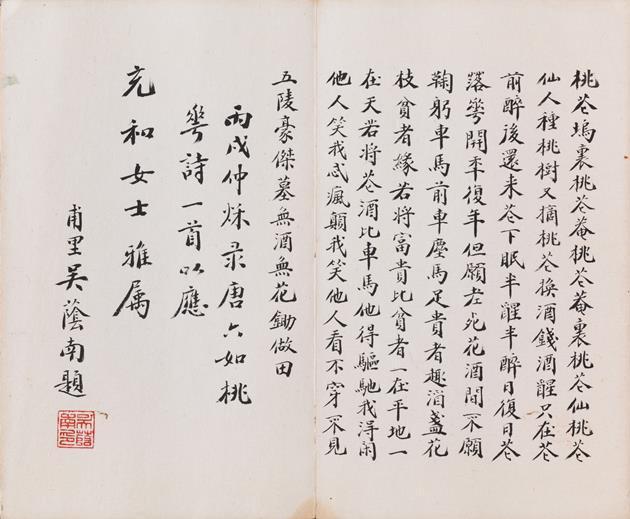 桃花塢裏桃花菴桃花菴裏桃花仙桃花
仙人種桃樹又摘桃花換酒錢酒醒只在花
前醉後還来花下眠半醒半醉日復日花
落華開年復年但願老死花酒間不願
鞠躬車馬前車塵馬足貴者趣酒盞花
枝貧者緣若將富貴比貧者一在平地一
在天若將花酒比車馬他得驅馳我得閑
他人笑我忒瘋顛我笑他人看不穿不見
五陵豪傑墓無酒無花鋤做田
丙戌仲秌录唐六如桃
華詩一首以應
充和女士雅属
甫里吴蔭南題
吳蔭南印